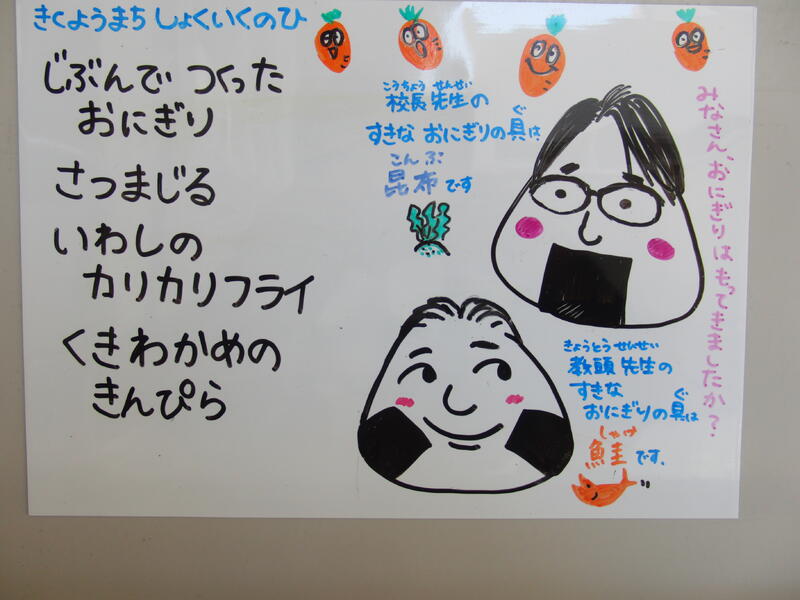 きくようまち しょくいくのひ
じぶんで つくった
おにぎり
さつまじる
いわしの
カリカリフライ
くきわかめの
きんぴら
こうちょう せんせい
校長先生の
ぐ
すきな おにぎりの具は、
こんぶ
昆布です
みなさん、おにぎりはもってきましたか?
きょうとう せんせい
教頭先生の
すきな
ぐ
おにぎりの具は
しゃけ
鮭です、